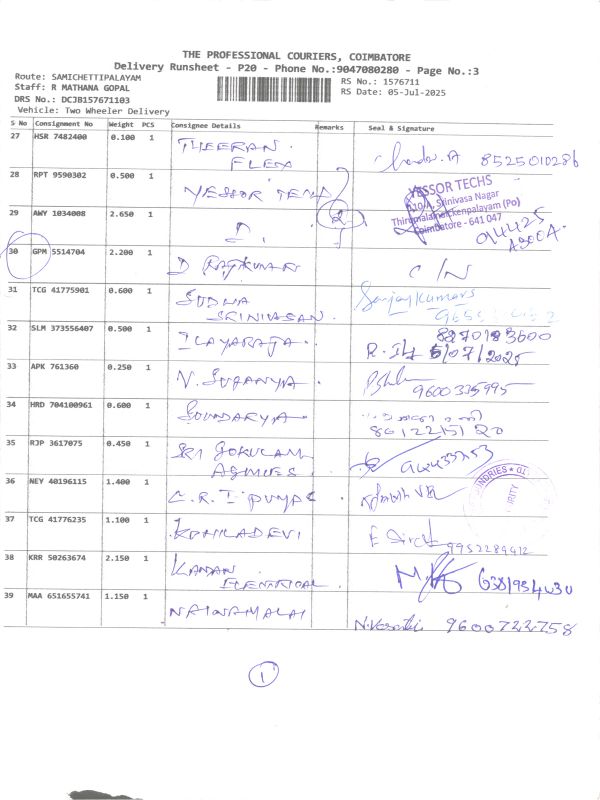 THE PROFESSIONAL COURIERS, COIMBATORE
Delivery Runsheet - P20 - Phone No.:9047080280 - Page No.:3
Route: SAMICHETTIPALAYAM
Staff: R MATHANA GOPAL
DRS No.: DCJB157671103
Vehicle: Two Wheeler Delivery
RS No.: 1576711
RS Date: 05-Jul-2025
S No Consignment No Weight PCS Consignee Details Remarks Seal & Signature
27 HSR 7482400 0.100 1 THEERAN FLEX Chandra.A 8525010286
28 RPT 9590302 0.500 1 YESSOR TECH
YESSOR TECHS
Srinivasa Nagar
(Po)
Coimbatore - 641 047
29 AWY 1034008 2.650 1 2
30 GPM 5514704 2.200 1 D RAJKUMAR C/N
31 TCG 41775901 0.600 1 SUDHA SRINIVASAN. Sanjay Kumars
32 SLM 373556407 0.500 1 ILAYARAJA. 8270183600
5/07/2025
33 APK 761360 0.250 1 N. SUGANYA. 9600335995
34 HRD 704100961 0.600 1 SOUNDARYA.
35 RJP 3617075 0.450 1 SRI GOKULAM
36 NEY 40196115 1.400 1 C.R.
37 TCG 41776235 1.100 1 KOKILADEVI 9952289412
38 KRR 50263674 2.150 1 KANAN ELECTRICAL.
39 MAA 651655741 1.150 1 NAINAMALAI 9600722758
1